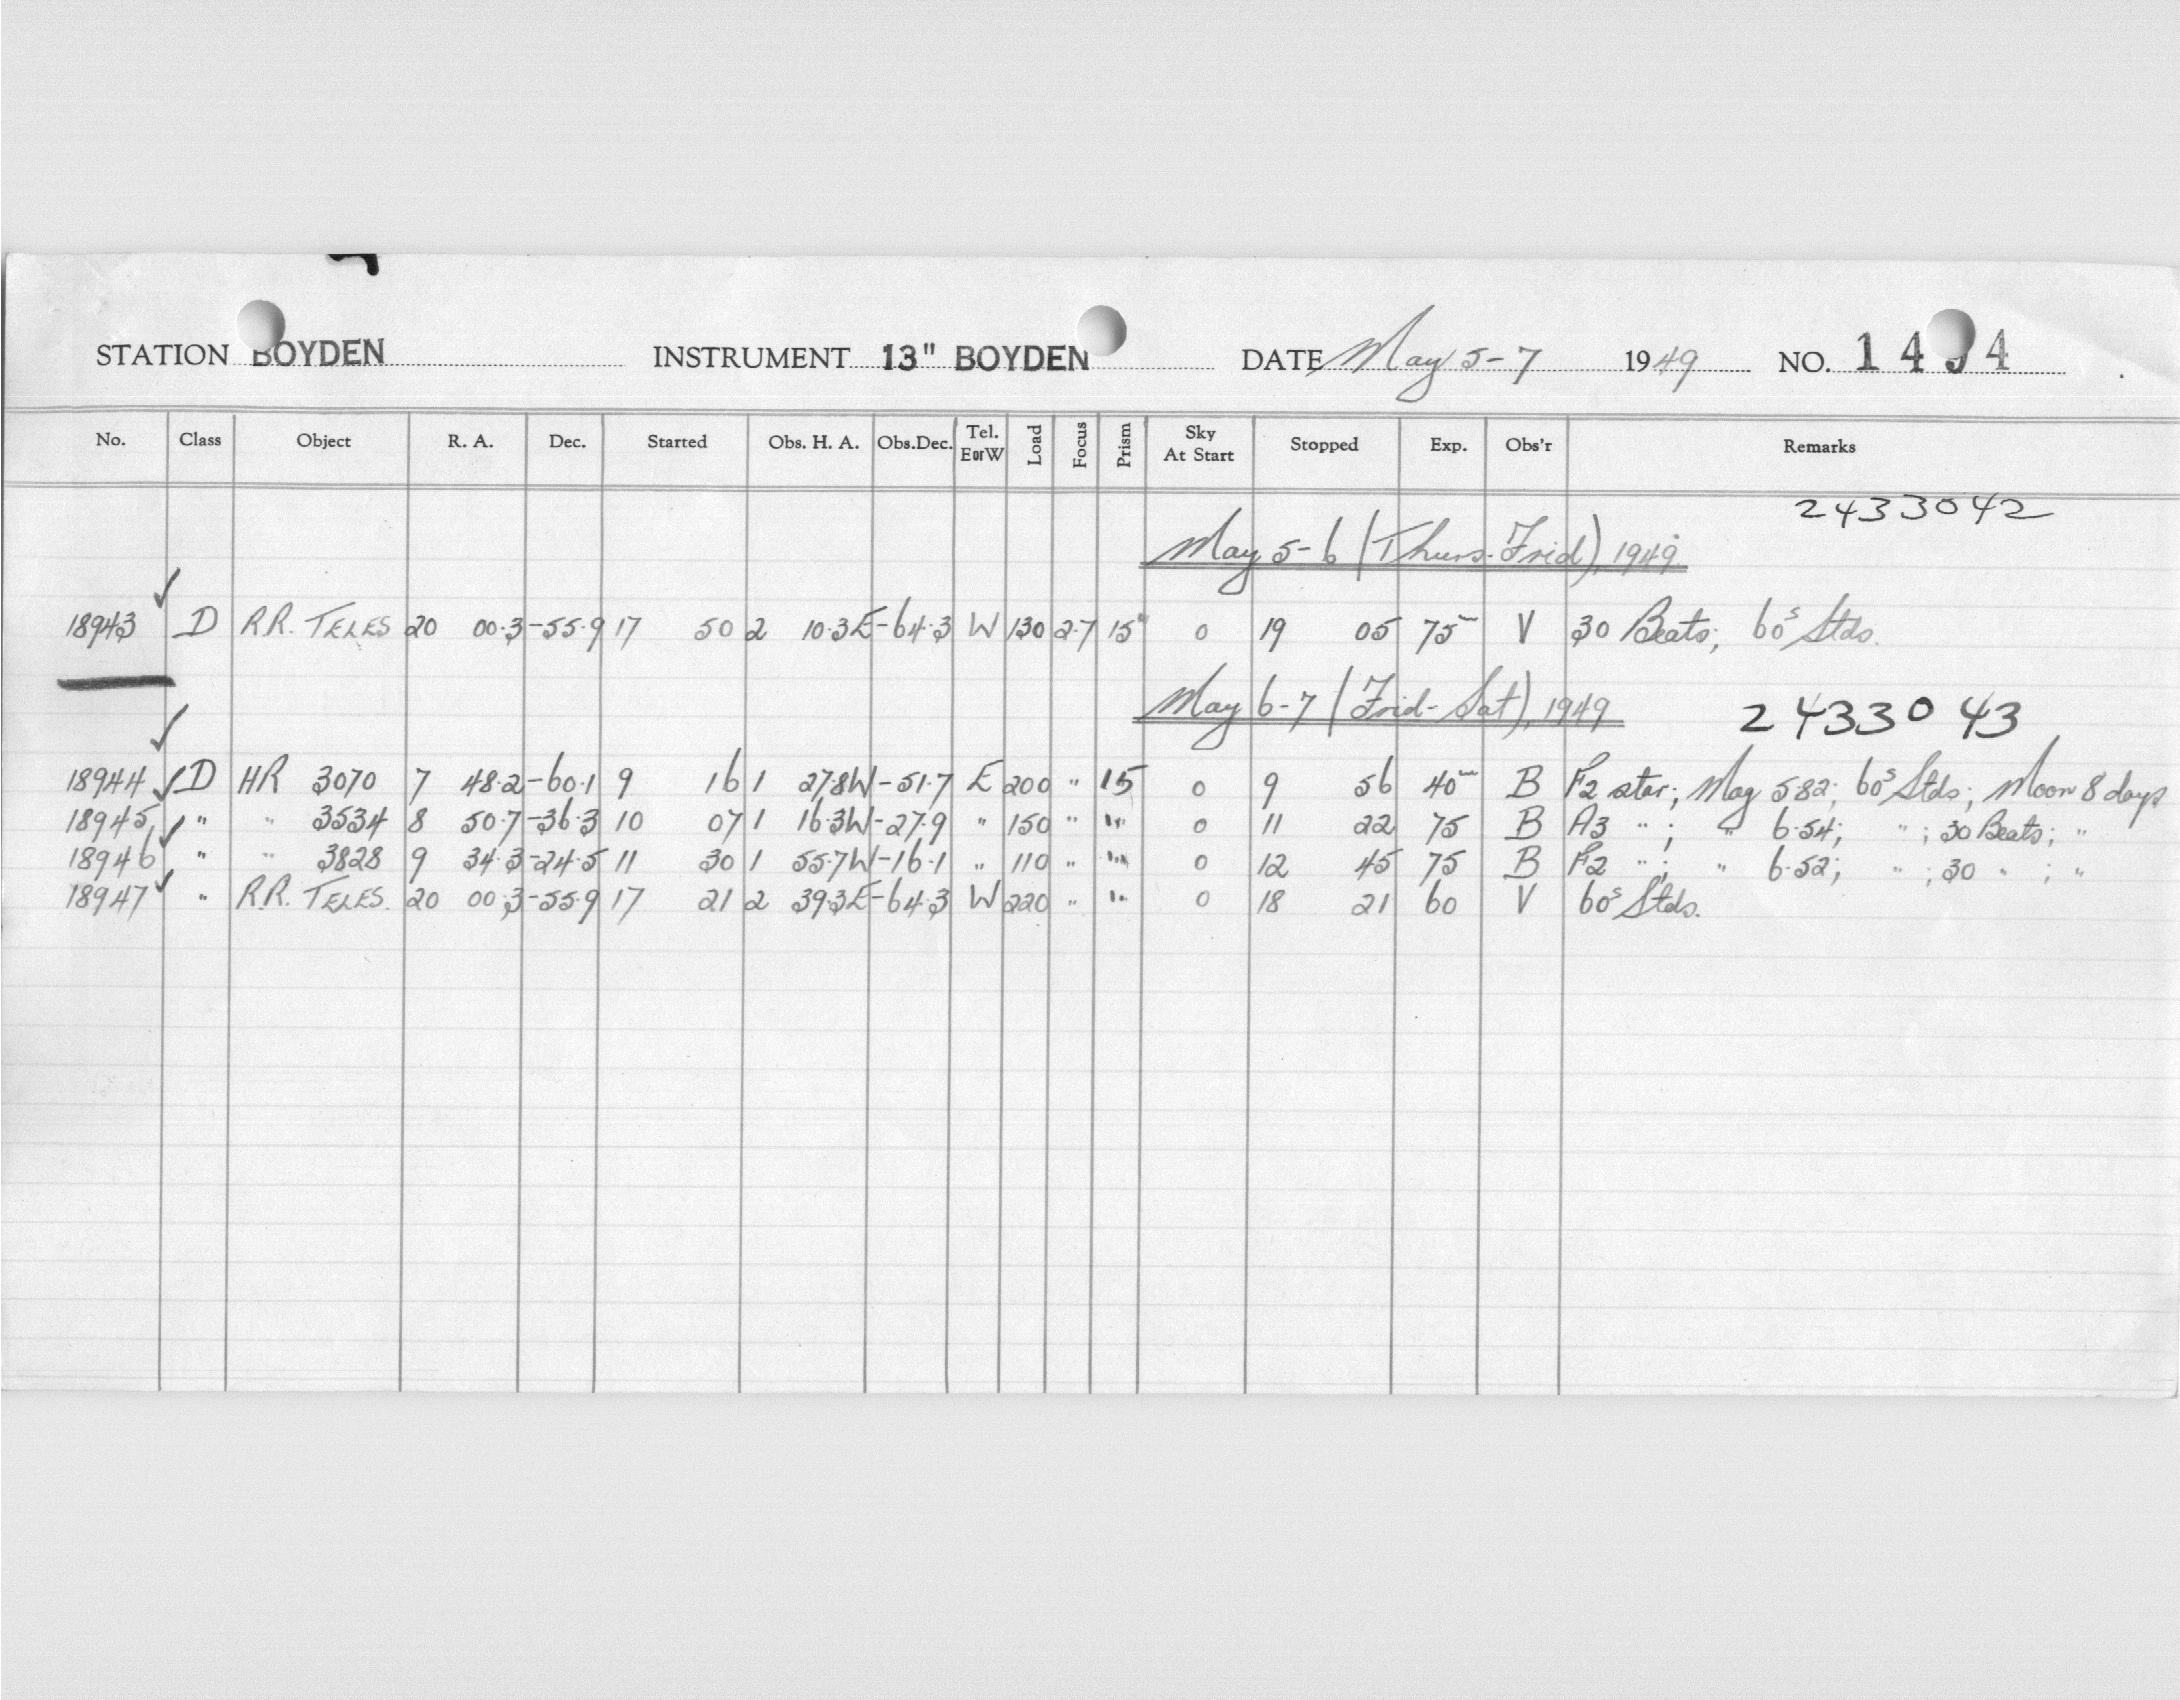 STATION BOYDEN INSTRUMENT 13" BOYDEN DATE May 5-7 1949 NO. 1494
No. Class Object R. A. Dec. Started Obs. H. A. Obs.Dec. Tel. E or W Load Focus Prism Sky At Start Stopped Exp. Obs'r Remarks
2433042
May 5-6 (Thurs-Frid), 1949.
18943 ✓ D R.R. TELES 20 00.3 -55.9 17 50 2 10.3E -64.3 W 130 2.7 15° 0 19 05 75m V 30 Beats; 60s Stds.
May 6-7 (Frid-Sat), 1949 2433043
18944 ✓ D HR 3070 7 48.2 -60.1 9 16 1 27.8W -51.7 E 200 " 15 0 9 56 40m B F2 star; Mag 5.82; 60s Stds; Moon 8 days
18945 ✓ " " 3534 8 50.7 -36.3 10 07 1 16.3W -27.9 " 150 " " 0 11 22 75 B A3 "; " 6.54; "; 30 Beats; "
18946 ✓ " " 3828 9 34.3 -24.5 11 30 1 55.7W -16.1 " 110 " " 0 12 45 75 B F2 "; " 6.52; "; 30 "; "
18947 ✓ " R.R. TELES. 20 00.3 -55.9 17 21 2 39.3E -64.3 W 220 " " 0 18 21 60 V 60s Stds.